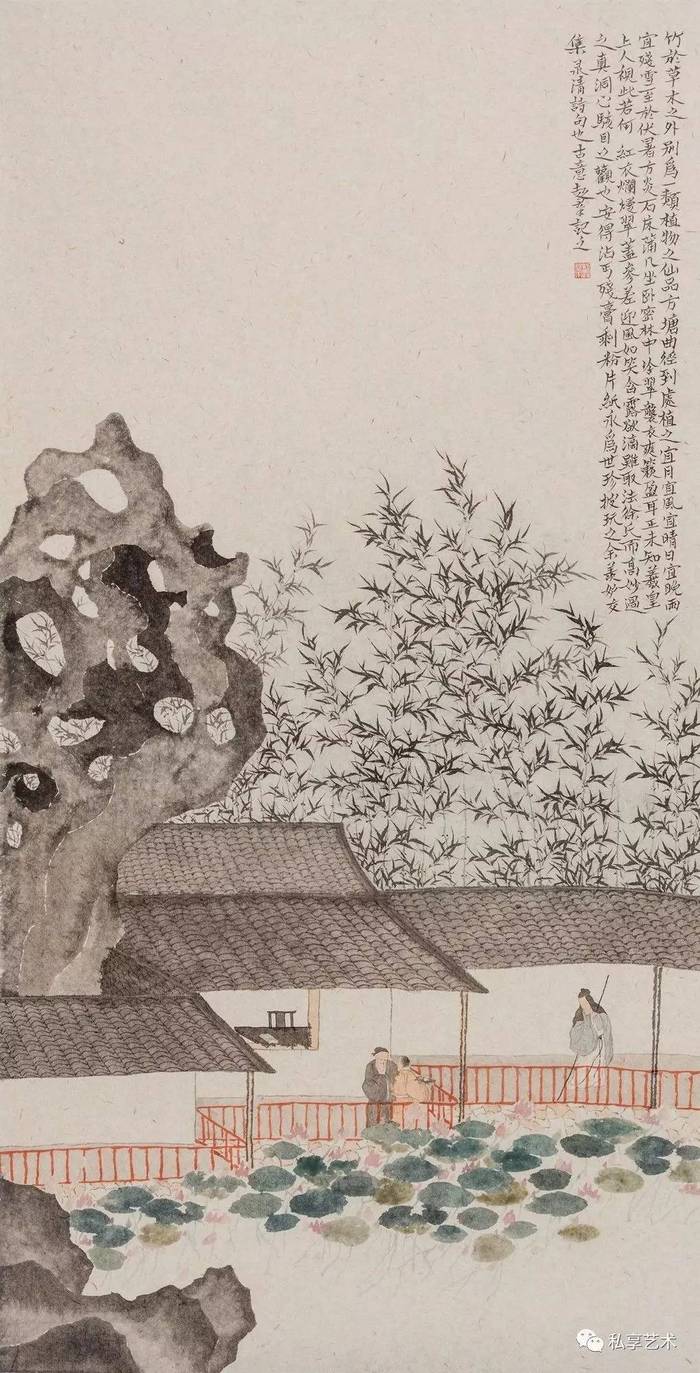 竹於草木之外別爲一類植物之仙品方塘曲徑到處植之宜月宜風宜晴日宜晚雨
宜殘雪至於伏暑方炎石床蒲几坐卧密林中冷翠襲衣爽籁盈耳正未知羲皇
上人視此若何 紅衣爛熳翠蓋參差迎風如笑含露欲滴雖取法徐氏而高妙過
之真洞心駭目之觀也安得沾丐殘膏剩粉片紙永爲世珍披玩之余羨妙交
集录清詩句也古意記之
私享艺术